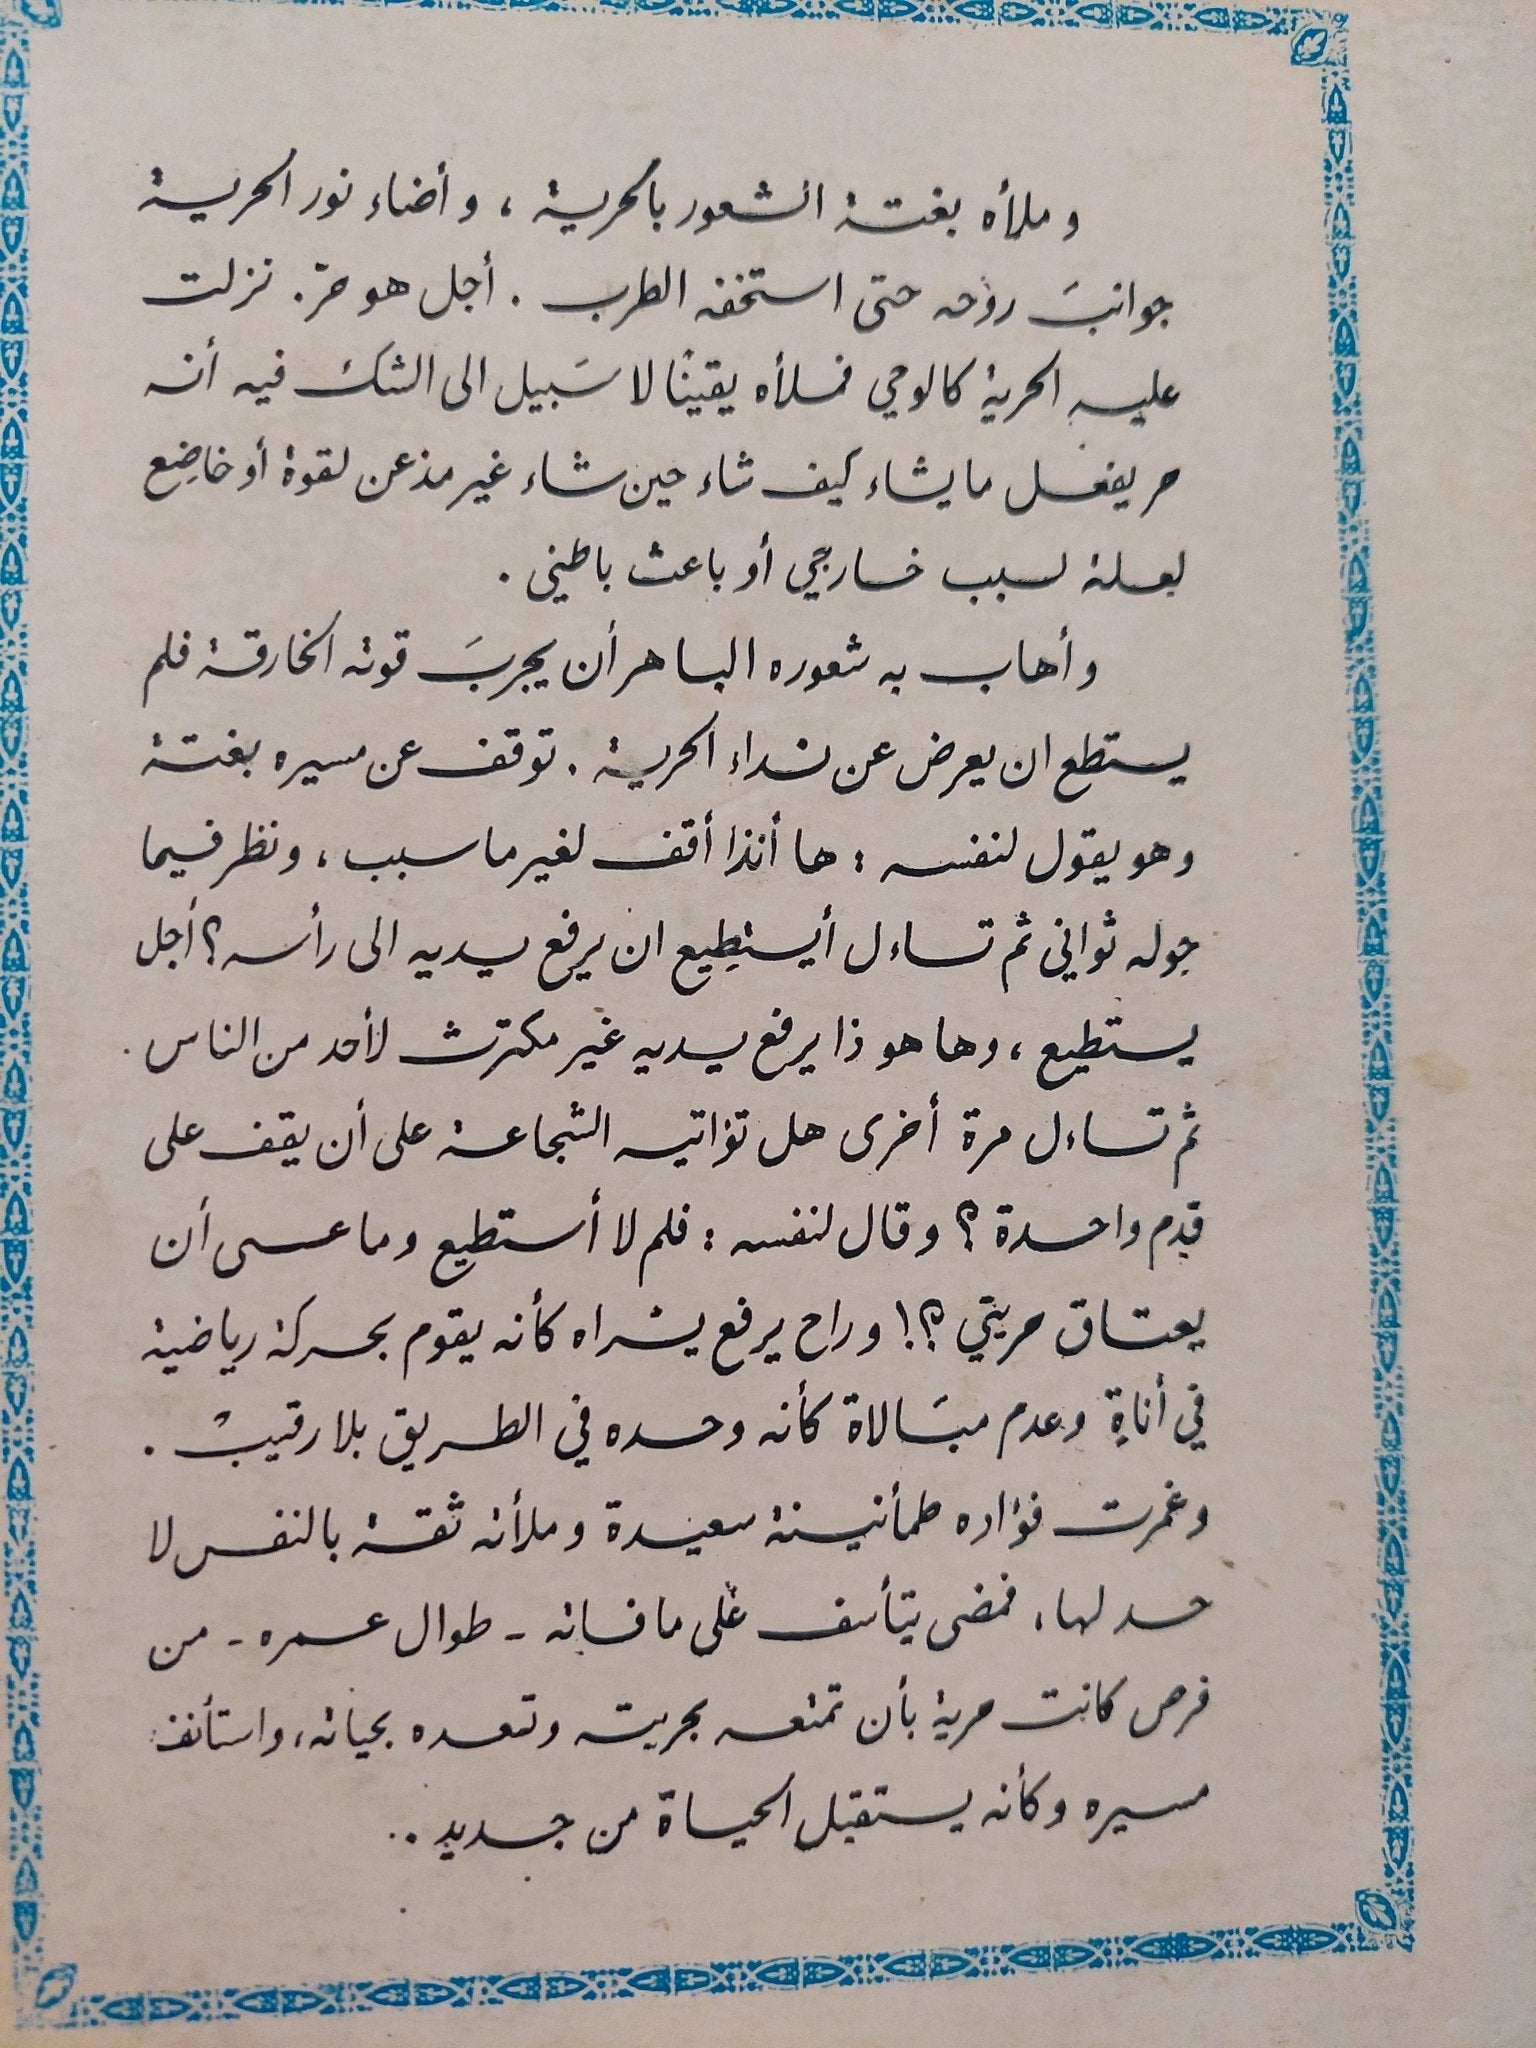 وملأه بغتة الشعور بالحرية ، وأضاء نور الحرية
جوانبَ روحه حتى استخفه الطرب . أجل هو حرّ . نزلت
عليه الحرية كالوحي فملأه يقينًا لا سَبيل الى الشك فيه أنه
حر يفعل ما يشاء كيف شاء حين شاء غير مذعن لقوة أو خاضِع
لعلة لسبب خارجي أو باعث باطني .
وأهاب به شعوره الباهر أن يجربَ قوته الخارقة فلم
يستطع ان يعرض عن نداء الحرية . توقف عن مسيره بغتة
وهو يقول لنفسه : ها أنذا أقف لغير ما سبب ، ونظر فيما
حوله ثواني ثم تساءل أيستطِيع ان يرفع يديه الى رأسه ؟ أجل
يستطيع ، وها هو ذا يرفع يديه غير مكترث لأحد من الناس .
ثم تساءل مرة أخرى هل تؤاتيه الشجاعة على أن يقف على
قدم واحدة ؟ وقال لنفسه : فلم لا أستطيع وما عسى أن
يعتاق حريتي ؟! وراح يرفع يسراه كأنه يقوم بحركة رياضية
في أناةٍ وعدم مبَالاة كأنه وحده في الطريق بلا رقيبْ .
وغمرت فؤاده طمأنينة سعيدة وملأته ثقة بالنفس لا
حد لها ، فمضى يتأسف على ما فاته - طوال عمره - من
فرص كانت حرية بأن تمتعه بحريته وتسعده بحياته ، واستأنف
مسيره وكأنه يستقبل الحياة من جديد ..